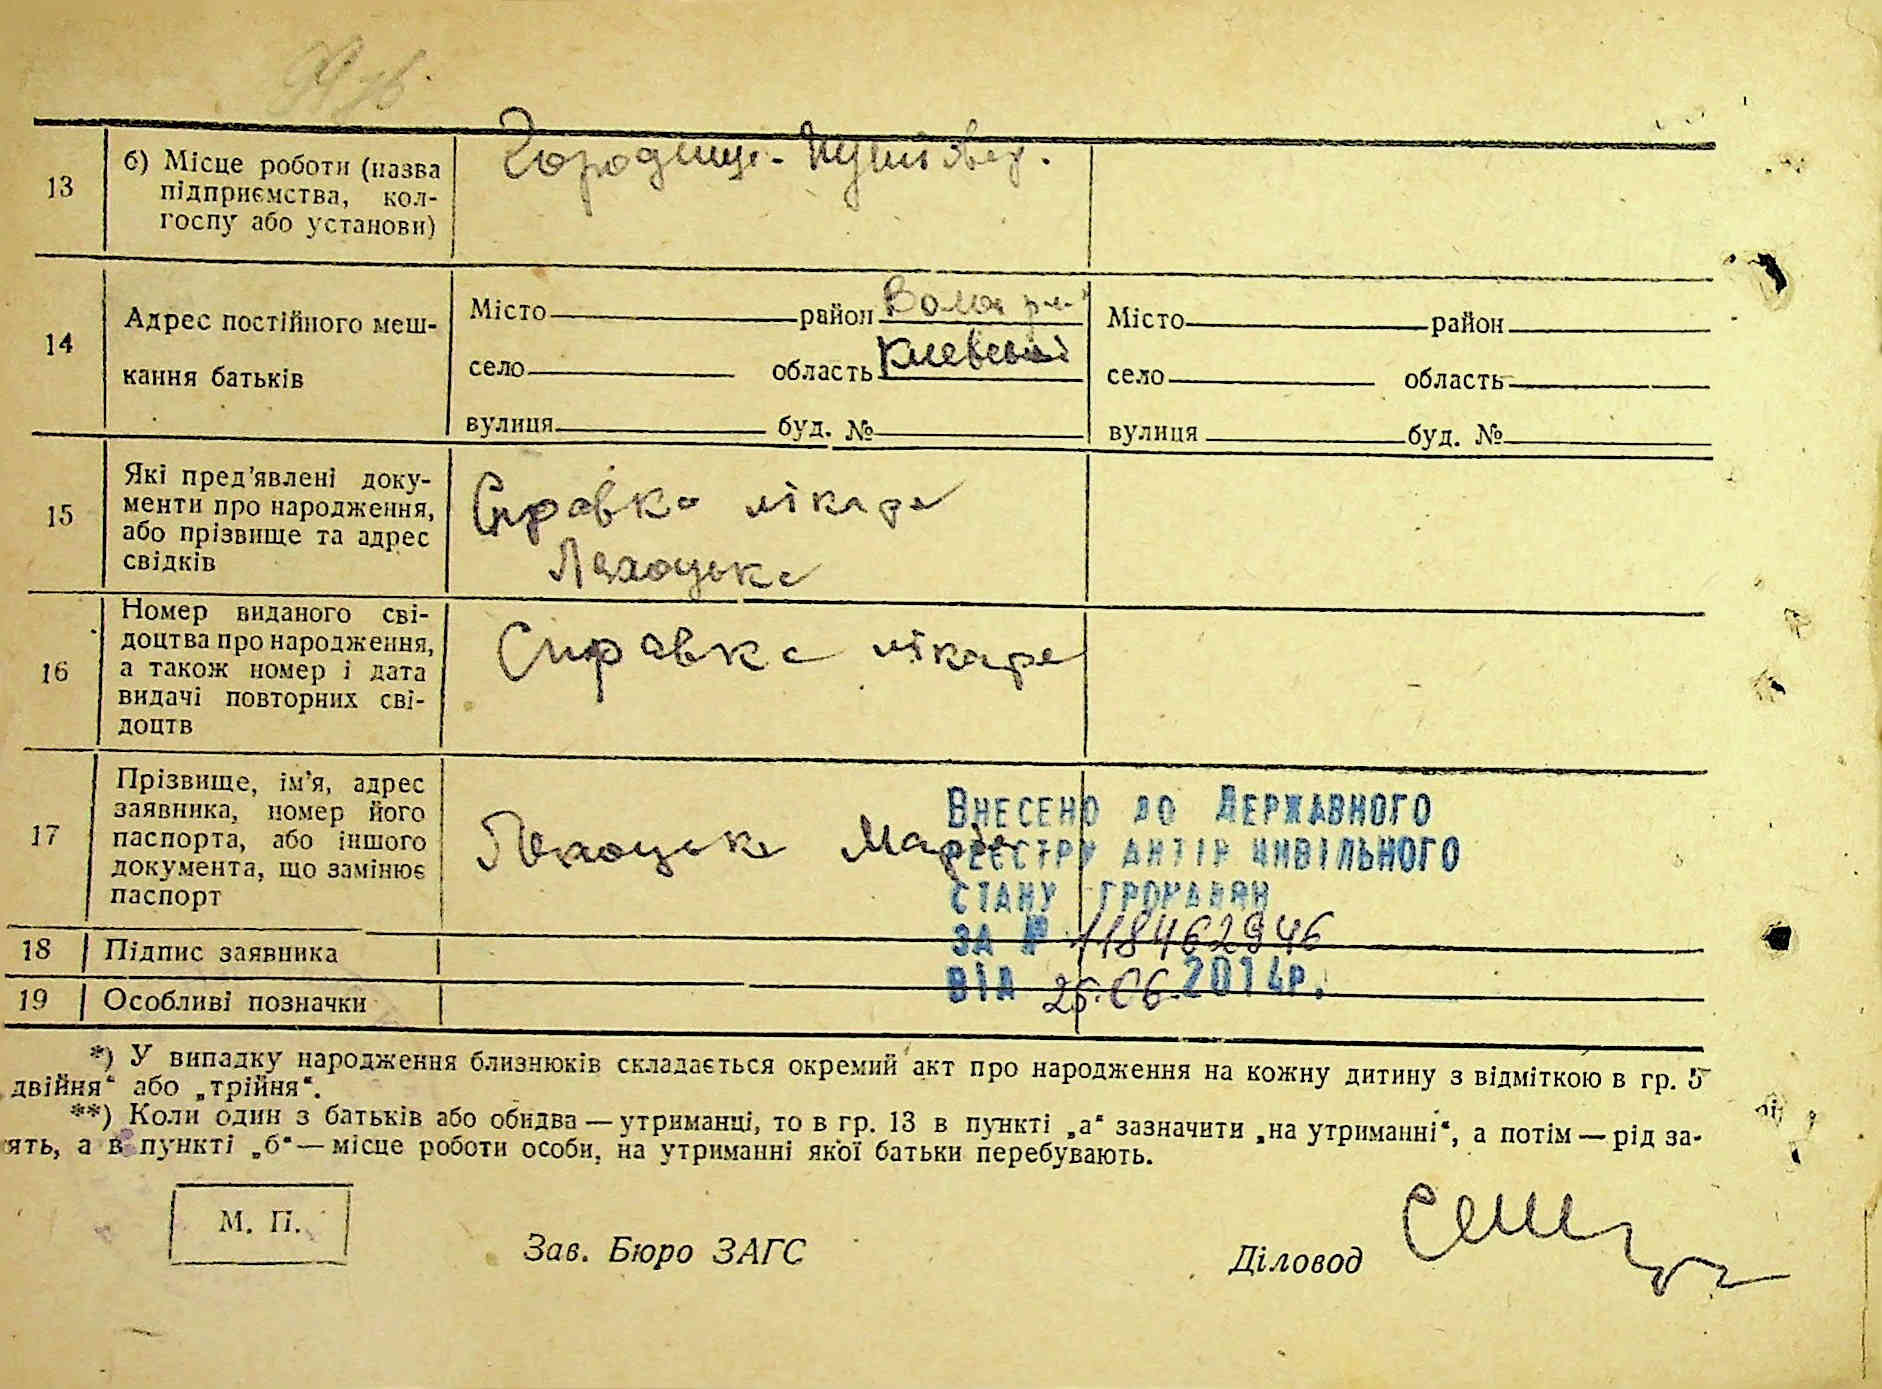 13
б) Місце роботи (назва
підприємства, кол-
госпу або установи)
Городище-
14
Адрес постійного меш-
кання батьків
Місто район Волод р-н
село область Київський
вулиця буд. №
Місто район
село область
вулиця буд. №
15
Які пред'явлені доку-
менти про народження,
або прізвище та адрес
свідків
Справка лікаря
16
Номер виданого сві-
доцтва про народження,
а також номер і дата
видачі повторних сві-
доцтв
Справка лікаря
17
Прізвище, ім'я, адрес
заявника, номер його
паспорта, або іншого
документа, що замінює
паспорт
Марія
Внесено до Державного
реєстру актів цивільного
стану громадян
за № 118462946
від 25.06.2014р.
18 Підпис заявника
19 Особливі позначки
*) У випадку народження близнюків складається окремий акт про народження на кожну дитину з відміткою в гр. 5
двійня" або „трійня".
**) Коли один з батьків або обидва — утриманці, то в гр. 13 в пункті „а" зазначити „на утриманні", а потім — рід за-
ять, а в пункті „б" — місце роботи особи, на утриманні якої батьки перебувають.
М. П.
Зав. Бюро ЗАГС
Діловод